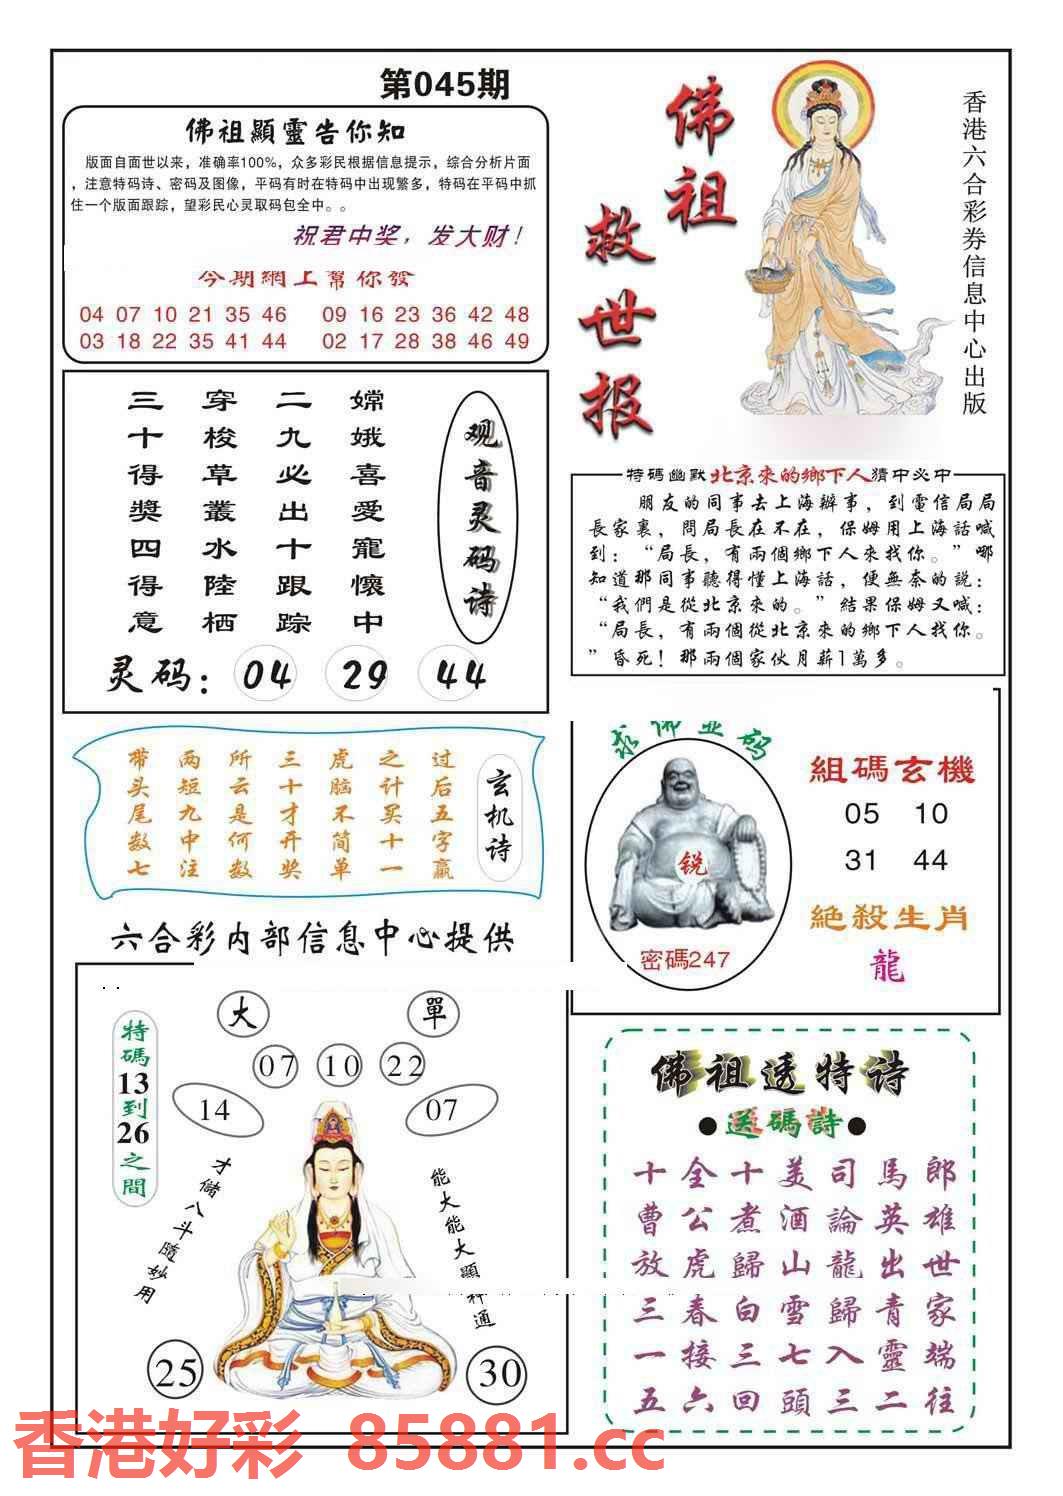 第045期
佛祖顯靈告你知
版面自面世以来，准确率100%，众多彩民根据信息提示，综合分析片面
，注意特码诗、密码及图像，平码有时在特码中出现繁多，特码在平码中抓
住一个版面跟踪，望彩民心灵取码包全中。。
祝君中奖，发大财！
今期網上幫你發
04 07 10 21 35 46 09 16 23 36 42 48
03 18 22 35 41 44 02 17 28 38 46 49
佛祖
救世报
香港六合彩券信息中心出版
观音灵码诗
嫦娥喜愛寵懷中
二九必出十跟踪
穿梭草叢水陸栖
三十得獎四得意
灵码：04 29 44
特碼幽默北京來的鄉下人猜中必中
朋友的同事去上海辦事，到電信局局
長家裏，問局長在不在，保姆用上海話喊
到：“局長，有兩個鄉下人來找你。”哪
知道那同事聽得懂上海話，便無奈的説：
“我們是從北京來的。”結果保姆又喊：
“局長，有兩個從北京來的鄉下人找你。
”昏死！那兩個家伙月薪1萬多。
玄机诗
过后五字赢
之计买十一
虎脑不简单
三十才开奖
所云是何数
两短九中注
带头尾数七
求佛显码
锐
密碼247
組碼玄機
05 10
31 44
絕殺生肖
龍
六合彩内部信息中心提供
大 單
07 10 22
14 07
特碼13到26之間
才儲八斗隨妙用
能大能大顯神通
25 30
佛祖透特诗
●送碼詩●
十全十美司馬郎
曹公煮酒論英雄
放虎歸山龍出世
三春白雪歸青家
一接三七入靈端
五六回頭三二往
香港好彩 85881.cc